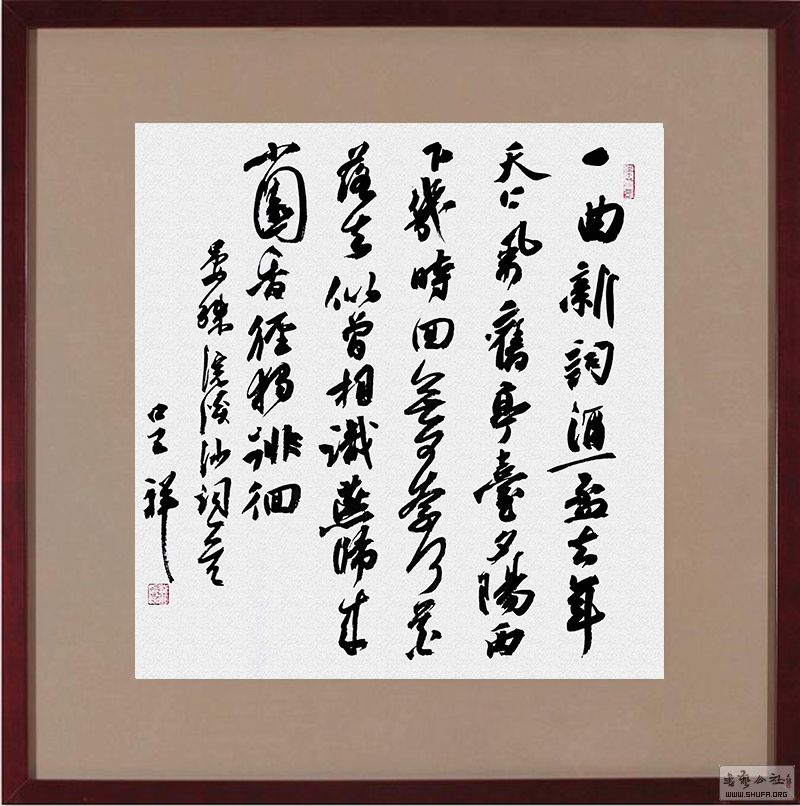 一曲新詞酒一盃去年
天氣舊亭臺夕陽西
下幾時回無可奈何花
落去似曾相識燕歸來
小園香徑獨徘徊
晏殊浣溪沙詞
祥
書藝公社
WWW.SHUFA.ORG